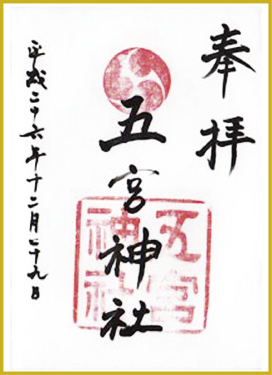 奉拝
五宮神社
五宮
神社
平成二十六年十二月二十九日